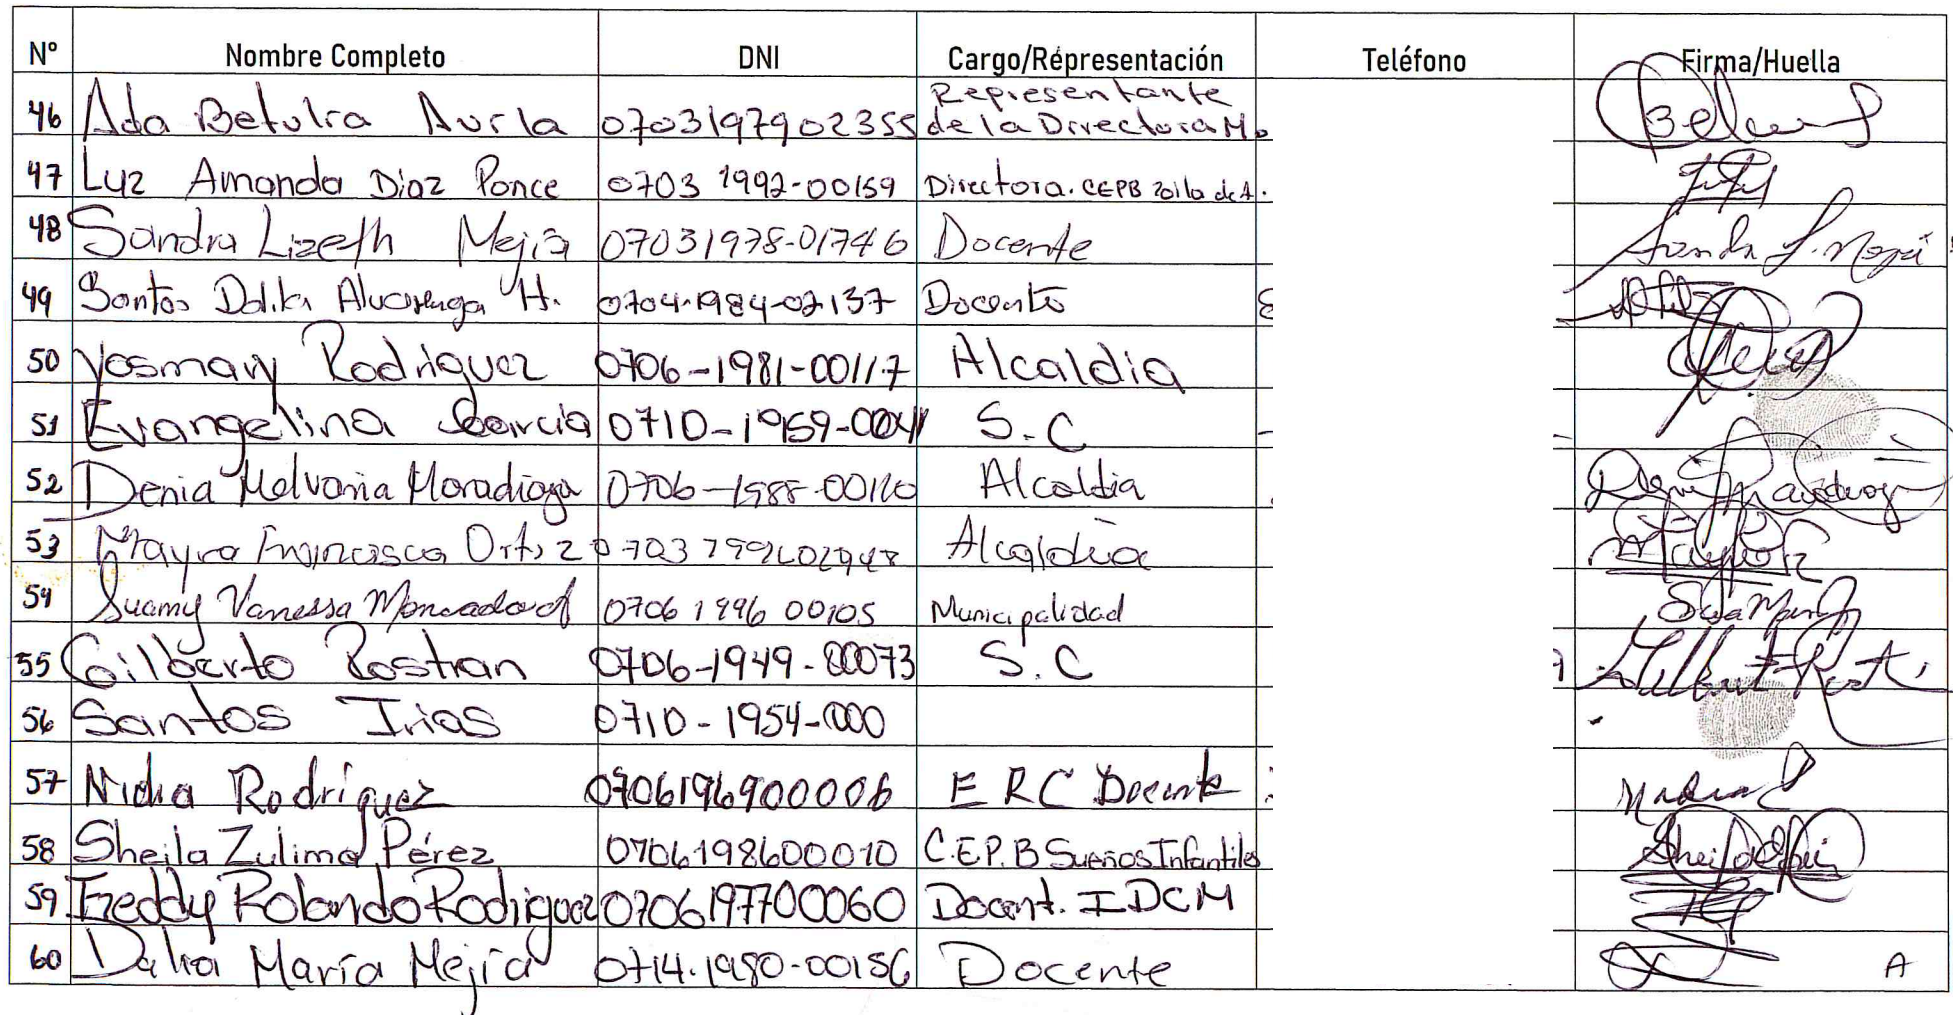 Nº Nombre Completo DNI Cargo/Representación Teléfono Firma/Huella
46 Ada Betulia Avila 0703197902355 Representante
de la Directora Mo
47 Luz Amanda Diaz Ponce 0703 1992-00159 Directora. CEPB Zoila de A.
48 Sandra Lizeth Mejía 07031978-01746 Docente
49 Santos Dalila Alvarenga H. 0704-1984-02137 Docente
50 Yosmary Rodriguez 0706-1981-00117 Alcaldia
51 Evangelina Garcia 0710-1959- S.C
52 Denia Melvania Maradiaga 0706-1988-00110 Alcaldia
53 Mayra Francisca Ortiz Alcaldia
54 Suamy Vanessa Moncada 0706 1996 00105 Municipalidad
55 Gilberto Rostran 0706-1949-00073 S.C
56 Santos Irias 0710-1954-000
57 Nidia Rodríguez 0706196900006 ERC Docente
58 Sheila Zulima Pérez 0706198600010 C.E.P.B Sueños Infantiles
59 Freddy Rolando Rodriguez 0706197700060 Docent. IDCM
60 Dalia María Mejía 0714-1980-00156 Docente A